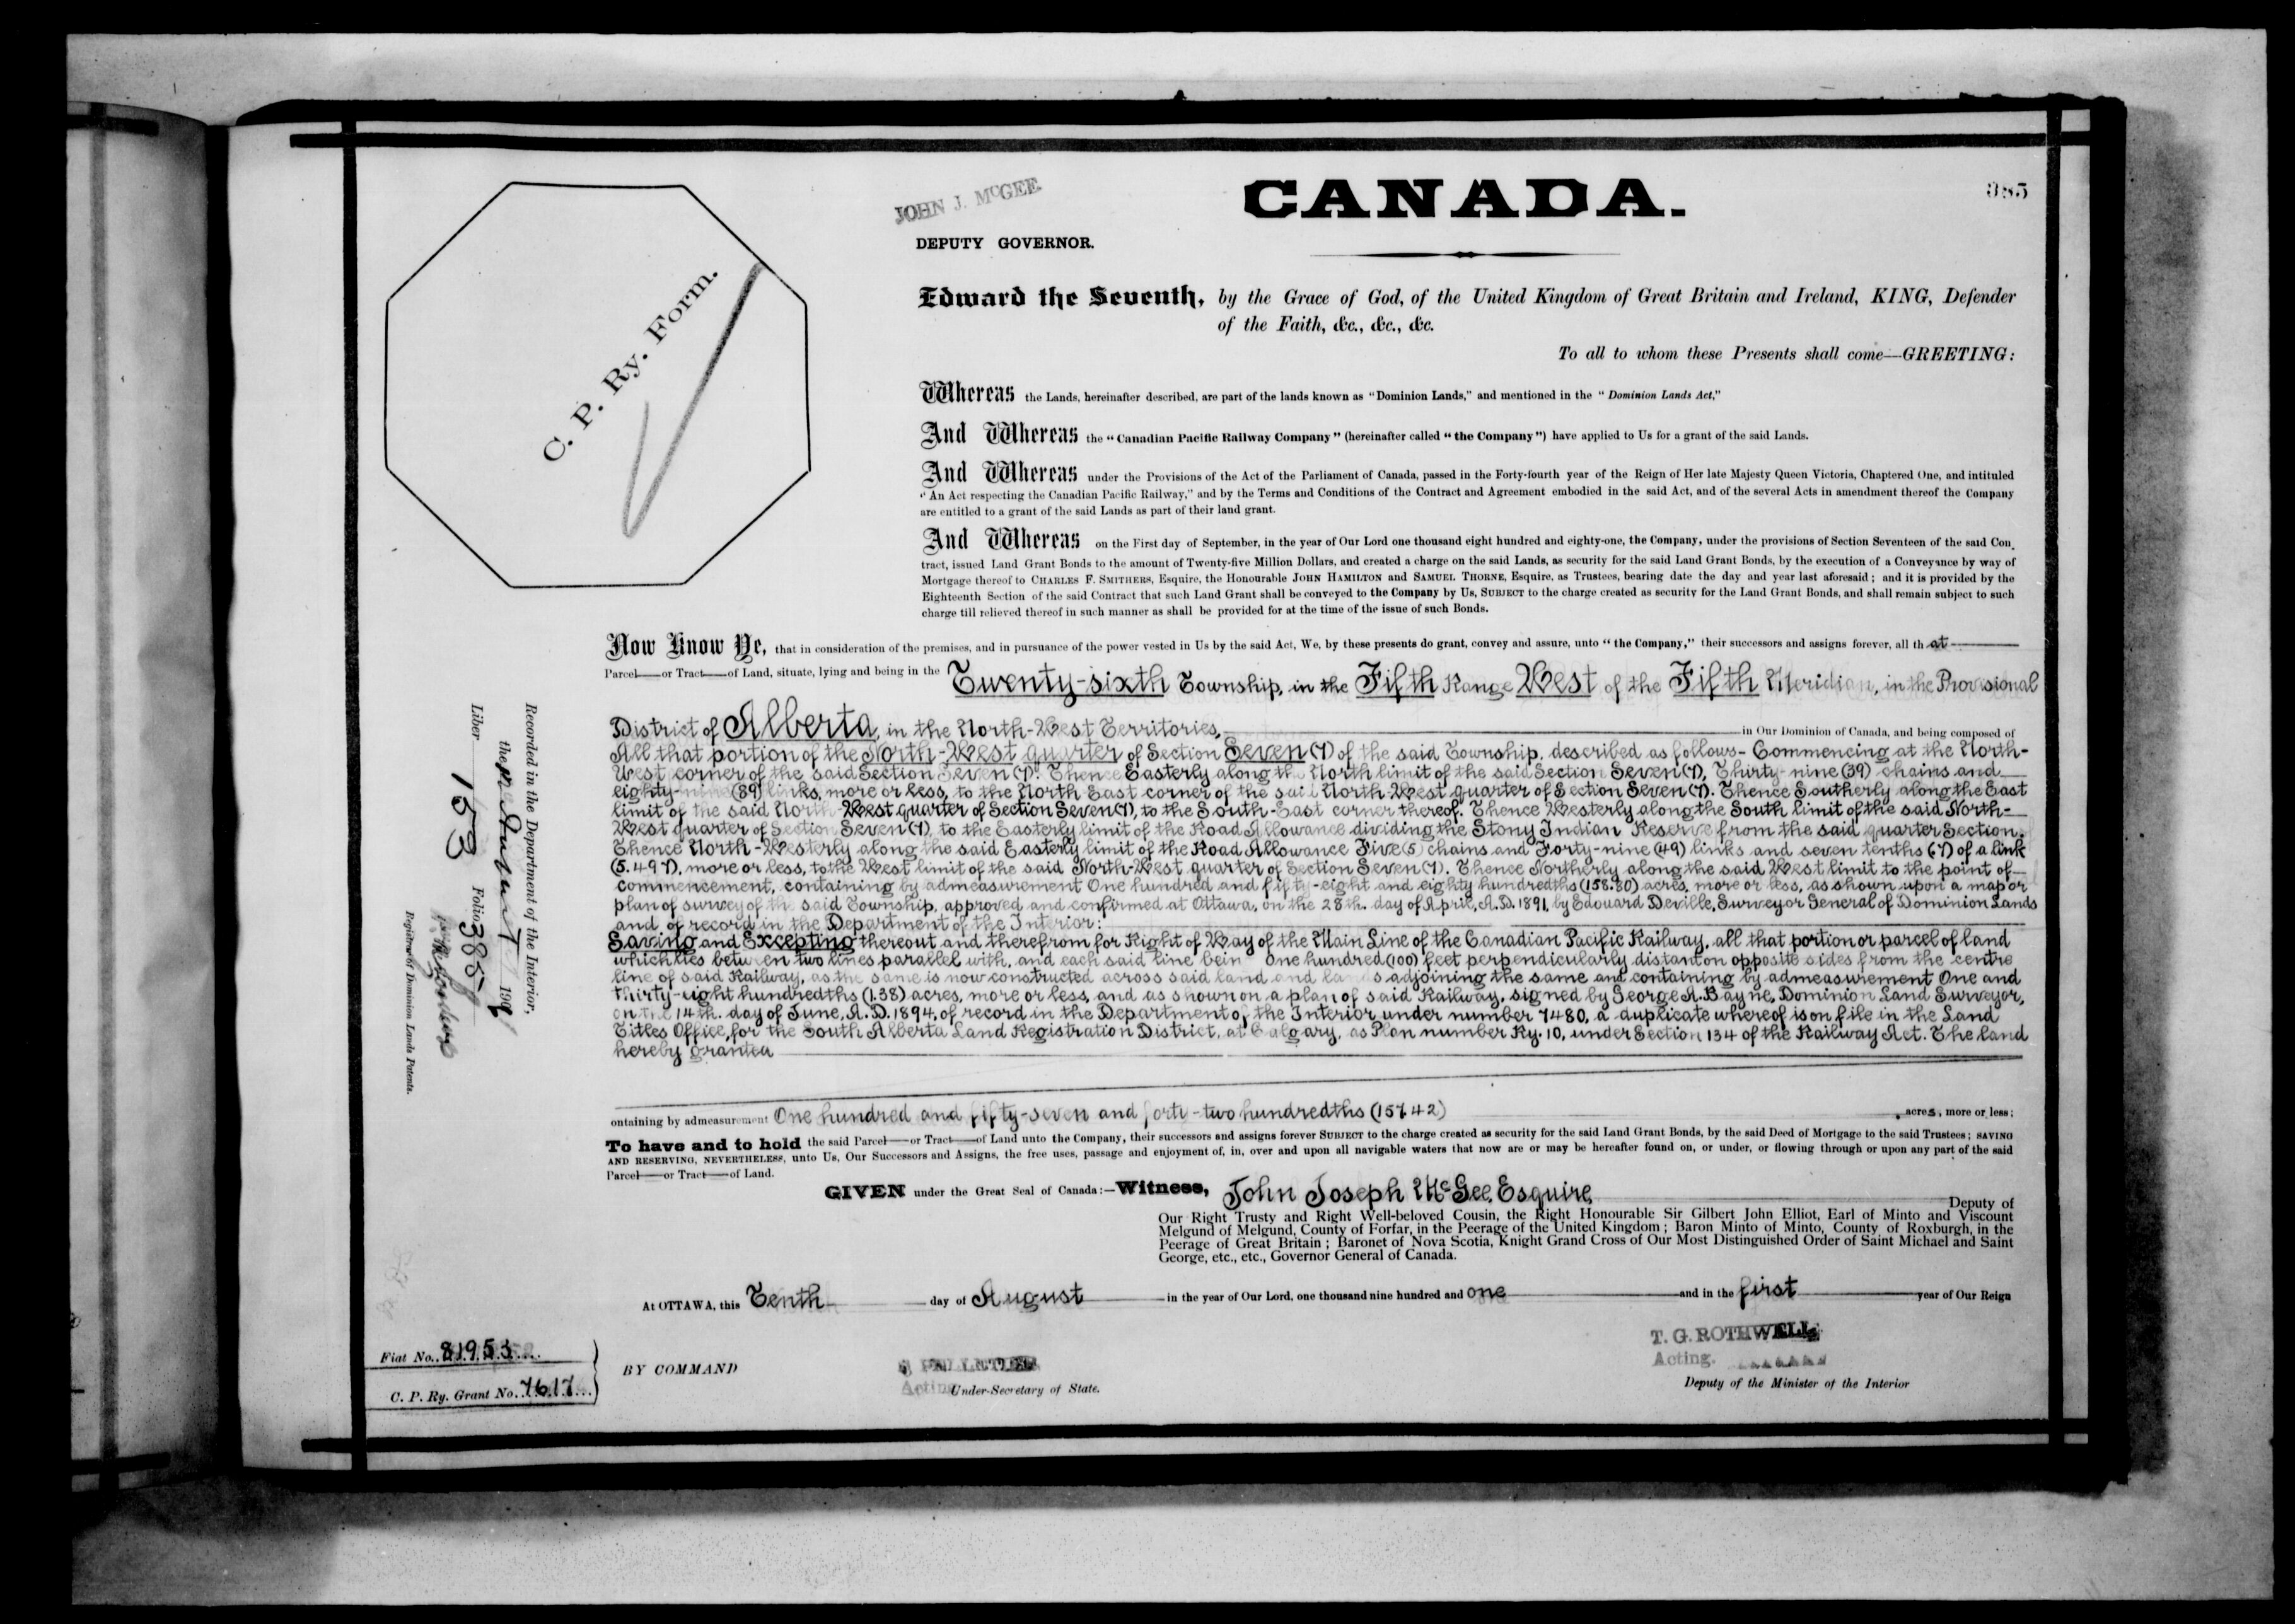 385
CANADA.
JOHN J. McGEE
DEPUTY GOVERNOR.
C. P. Ry. Form.
Edward the Seventh, by the Grace of God, of the United Kingdom of Great Britain and Ireland, KING, Defender
of the Faith, &c., &c., &c.
To all to whom these Presents shall come—GREETING:
Whereas the Lands, hereinafter described, are part of the lands known as "Dominion Lands," and mentioned in the "Dominion Lands Act,"
And Whereas the "Canadian Pacific Railway Company" (hereinafter called "the Company") have applied to Us for a grant of the said Lands.
And Whereas under the Provisions of the Act of the Parliament of Canada, passed in the Forty-fourth year of the Reign of Her late Majesty Queen Victoria, Chaptered One, and intituled
"An Act respecting the Canadian Pacific Railway," and by the Terms and Conditions of the Contract and Agreement embodied in the said Act, and of the several Acts in amendment thereof the Company
are entitled to a grant of the said Lands as part of their land grant.
And Whereas on the First day of September, in the year of Our Lord one thousand eight hundred and eighty-one, the Company, under the provisions of Section Seventeen of the said Con-
tract, issued Land Grant Bonds to the amount of Twenty-five Million Dollars, and created a charge on the said Lands, as security for the said Land Grant Bonds, by the execution of a Conveyance by way of
Mortgage thereof to CHARLES F. SMITHERS, Esquire, the Honourable JOHN HAMILTON and SAMUEL THORNE, Esquire, as Trustees, bearing date the day and year last aforesaid; and it is provided by the
Eighteenth Section of the said Contract that such Land Grant shall be conveyed to the Company by Us, SUBJECT to the charge created as security for the Land Grant Bonds, and shall remain subject to such
charge till relieved thereof in such manner as shall be provided for at the time of the issue of such Bonds.
Now Know Ye, that in consideration of the premises, and in pursuance of the power vested in Us by the said Act, We, by these presents do grant, convey and assure, unto "the Company," their successors and assigns forever, all that
Parcel or Tract of Land, situate, lying and being in the Twenty-sixth Township, in the Fifth Range West of the Fifth Meridian, in the Provisional
District of Alberta, in the North-West Territories, in Our Dominion of Canada, and being composed of
All that portion of the North-West quarter of Section Seven (7) of the said Township, described as follows- Commencing at the North-
West corner of the said Section Seven (7). Thence Easterly along the North limit of the said Section Seven (7), Thirty-nine (39) chains and
eighty-nine (89) links, more or less, to the North East corner of the said North-West quarter of Section Seven (7). Thence Southerly along the East
limit of the said North-West quarter of Section Seven (7), to the South-East corner thereof. Thence Westerly along the South limit of the said North-
West quarter of Section Seven (7), to the Easterly limit of the Road Allowance dividing the Stony Indian Reserve from the said quarter Section.
Thence North-Westerly along the said Easterly limit of the Road Allowance Five (5) chains and Forty-nine (49) links and seven tenths (.7) of a link
(5.497), more or less, to the West limit of the said North-West quarter of Section Seven (7). Thence Northerly along the said West limit to the point of
commencement, containing by admeasurement One hundred and fifty-eight and eighty hundredths (158.80) acres, more or less, as shown upon a map or
plan of survey of the said Township, approved and confirmed at Ottawa, on the 28th. day of April, A.D. 1891, by Edouard Deville, Surveyor General of Dominion Lands
and of record in the Department of the Interior:
Saving and Excepting thereout and therefrom for Right of Way of the Main Line of the Canadian Pacific Railway, all that portion or parcel of land
which lies between two lines parallel with, and each said line bein One hundred (100) feet perpendicularly distant on opposite sides from the centre
line of said Railway, as the same is now constructed across said land and lands adjoining the same and containing by admeasurement One and
thirty-eight hundredths (1.38) acres, more or less, and as shown on a plan of said Railway, signed by George A. Bayne, Dominion Land Surveyor,
on the 14th. day of June, A.D. 1894, of record in the Department of the Interior under number 7480, a duplicate whereof is on file in the Land
Titles Office, for the South Alberta Land Registration District, at Calgary, as Plan number Ry. 10, under Section 134 of the Railway Act. The land
hereby granted
ontaining by admeasurement One hundred and fifty-seven and forty-two hundredths (157.42) acres, more or less;
To have and to hold the said Parcel or Tract of Land unto the Company, their successors and assigns forever SUBJECT to the charge created as security for the said Land Grant Bonds, by the said Deed of Mortgage to the said Trustees; SAVING
AND RESERVING, NEVERTHELESS, unto Us, Our Successors and Assigns, the free uses, passage and enjoyment of, in, over and upon all navigable waters that now are or may be hereafter found on, or under, or flowing through or upon any part of the said
Parcel or Tract of Land.
GIVEN under the Great Seal of Canada:—Witness, John Joseph McGee, Esquire, Deputy of
Our Right Trusty and Right Well-beloved Cousin, the Right Honourable Sir Gilbert John Elliot, Earl of Minto and Viscount
Melgund of Melgund, County of Forfar, in the Peerage of the United Kingdom; Baron Minto of Minto, County of Roxburgh, in the
Peerage of Great Britain; Baronet of Nova Scotia, Knight Grand Cross of Our Most Distinguished Order of Saint Michael and Saint
George, etc., etc., Governor General of Canada.
At OTTAWA, this Tenth day of August in the year of Our Lord, one thousand nine hundred and one and in the first year of Our Reign
BY COMMAND
PELLETIER
Acting Under-Secretary of State.
T. G. ROTHWELL
Acting.
Deputy of the Minister of the Interior
Fiat No. 81953
C. P. Ry. Grant No. 7617
Recorded in the Department of the Interior,
the August 190
Liber 153 Folio 385
Registrar of Dominion Lands Patents.